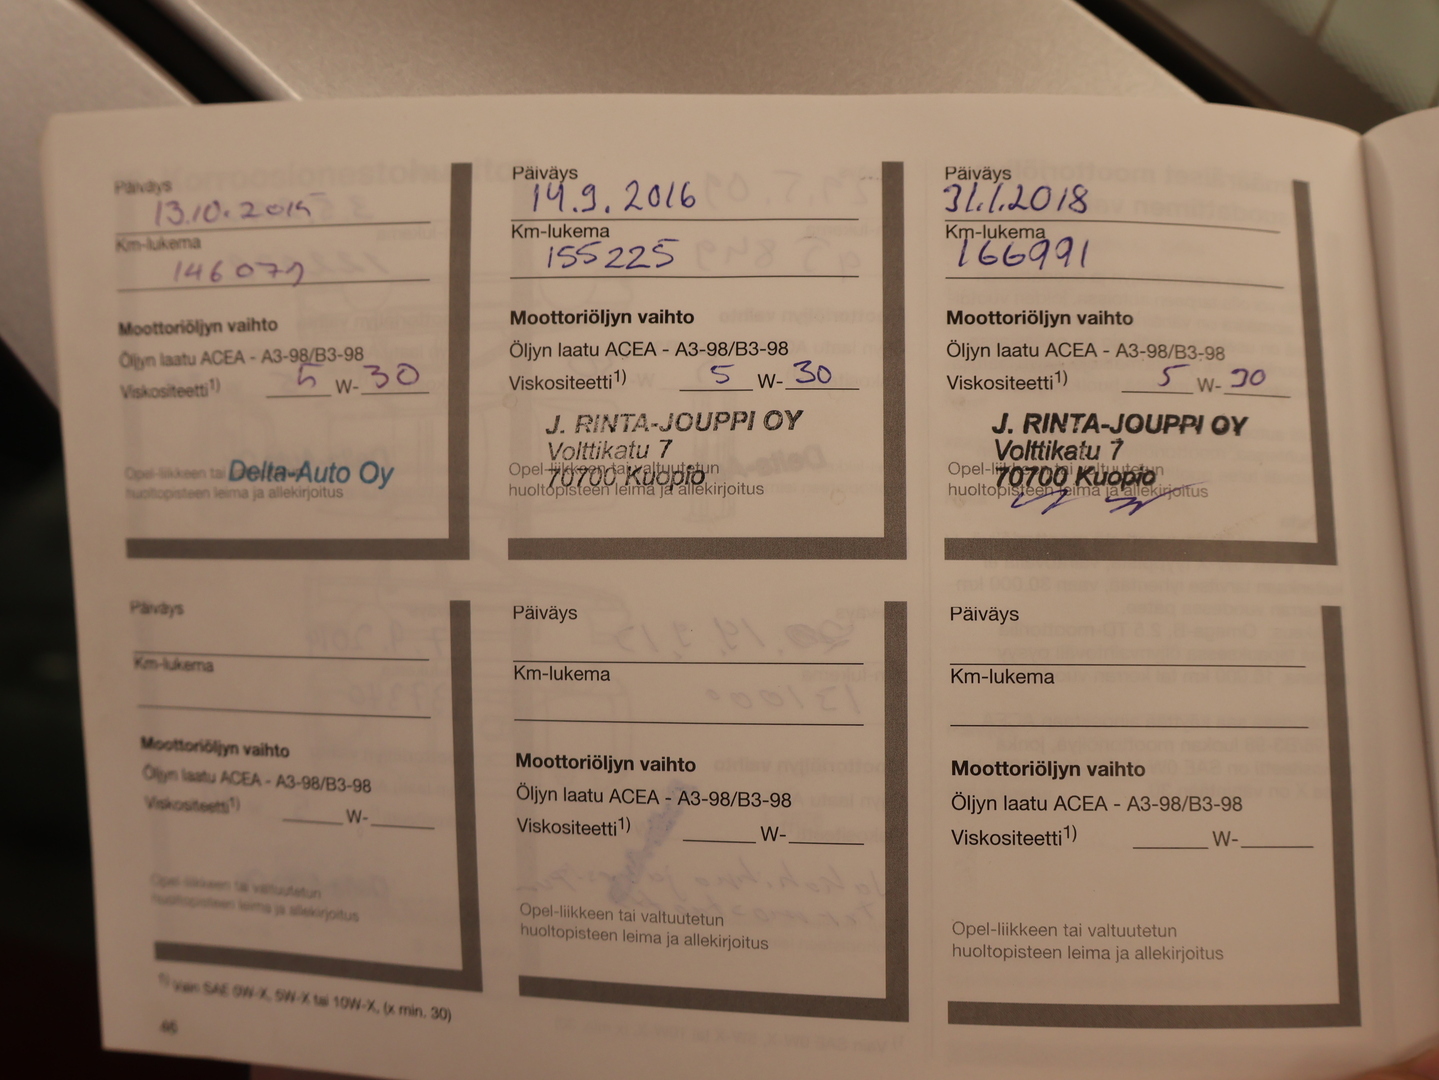 Päiväys
13.10.2014
Km-lukema
146079
Moottoriöljyn vaihto
Öljyn laatu ACEA - A3-98/B3-98
Viskositeetti1) 5 W- 30
Delta-Auto Oy
Opel-liikkeen tai
huoltopisteen leima ja allekirjoitus
Päiväys
19.9.2016
Km-lukema
155225
Moottoriöljyn vaihto
Öljyn laatu ACEA - A3-98/B3-98
Viskositeetti1) 5 W- 30
J. RINTA-JOUPPI OY
Volttikatu 7
70700 Kuopio
Opel-liikkeen tai valtuutetun
huoltopisteen leima ja allekirjoitus
Päiväys
31.1.2018
Km-lukema
166991
Moottoriöljyn vaihto
Öljyn laatu ACEA - A3-98/B3-98
Viskositeetti1) 5 W- 30
J. RINTA-JOUPPI OY
Volttikatu 7
70700 Kuopio
Opel-liikkeen tai valtuutetun
huoltopisteen leima ja allekirjoitus
Päiväys
Km-lukema
Moottoriöljyn vaihto
Öljyn laatu ACEA - A3-98/B3-98
Viskositeetti1) W-
Opel-liikkeen tai valtuutetun
huoltopisteen leima ja allekirjoitus
Päiväys
Km-lukema
Moottoriöljyn vaihto
Öljyn laatu ACEA - A3-98/B3-98
Viskositeetti1) W-
Opel-liikkeen tai valtuutetun
huoltopisteen leima ja allekirjoitus
Päiväys
Km-lukema
Moottoriöljyn vaihto
Öljyn laatu ACEA - A3-98/B3-98
Viskositeetti1) W-
Opel-liikkeen tai valtuutetun
huoltopisteen leima ja allekirjoitus
1) Vain SAE 0W-X, 5W-X tai 10W-X, (x min. 30)